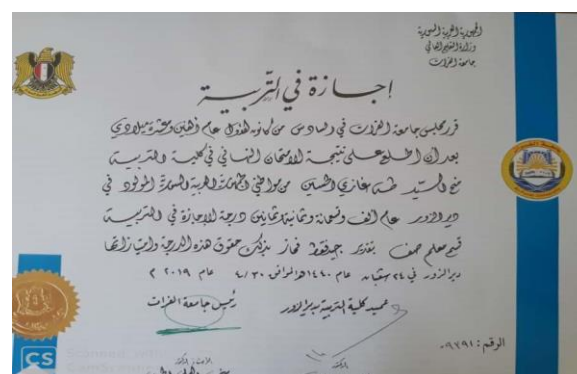 الجمهورية العربية السورية
وزارة التعليم العالي
جامعة الفرات
إجازة في التربية
قرر مجلس جامعة الفرات في السادس من كانون الأول عام ألفين وعشرة ميلادي
بعد أن اطلع على نتيجة الامتحان النهائي في كلية التربية
منح السيد طه غازي الحسين من مواطني الجمهورية العربية السورية المولود في
ديرالزور عام ألف وتسعمائة وثمانية وثمانين درجة الإجازة في التربية
قسم معلم صف بتقدير جيد فقط فحاز بذلك حقوق هذه الدرجة وامتيازاتها
ديرالزور في ٢٤ شعبان عام ١٤٤٠ هـ الموافق ٤/٣٠ عام ٢٠١٩ م
عميد كلية التربية بديرالزور
رئيس جامعة الفرات
الرقم: ٠٩٧٩١
الدكتور
الأستاذ الدكتور
CS